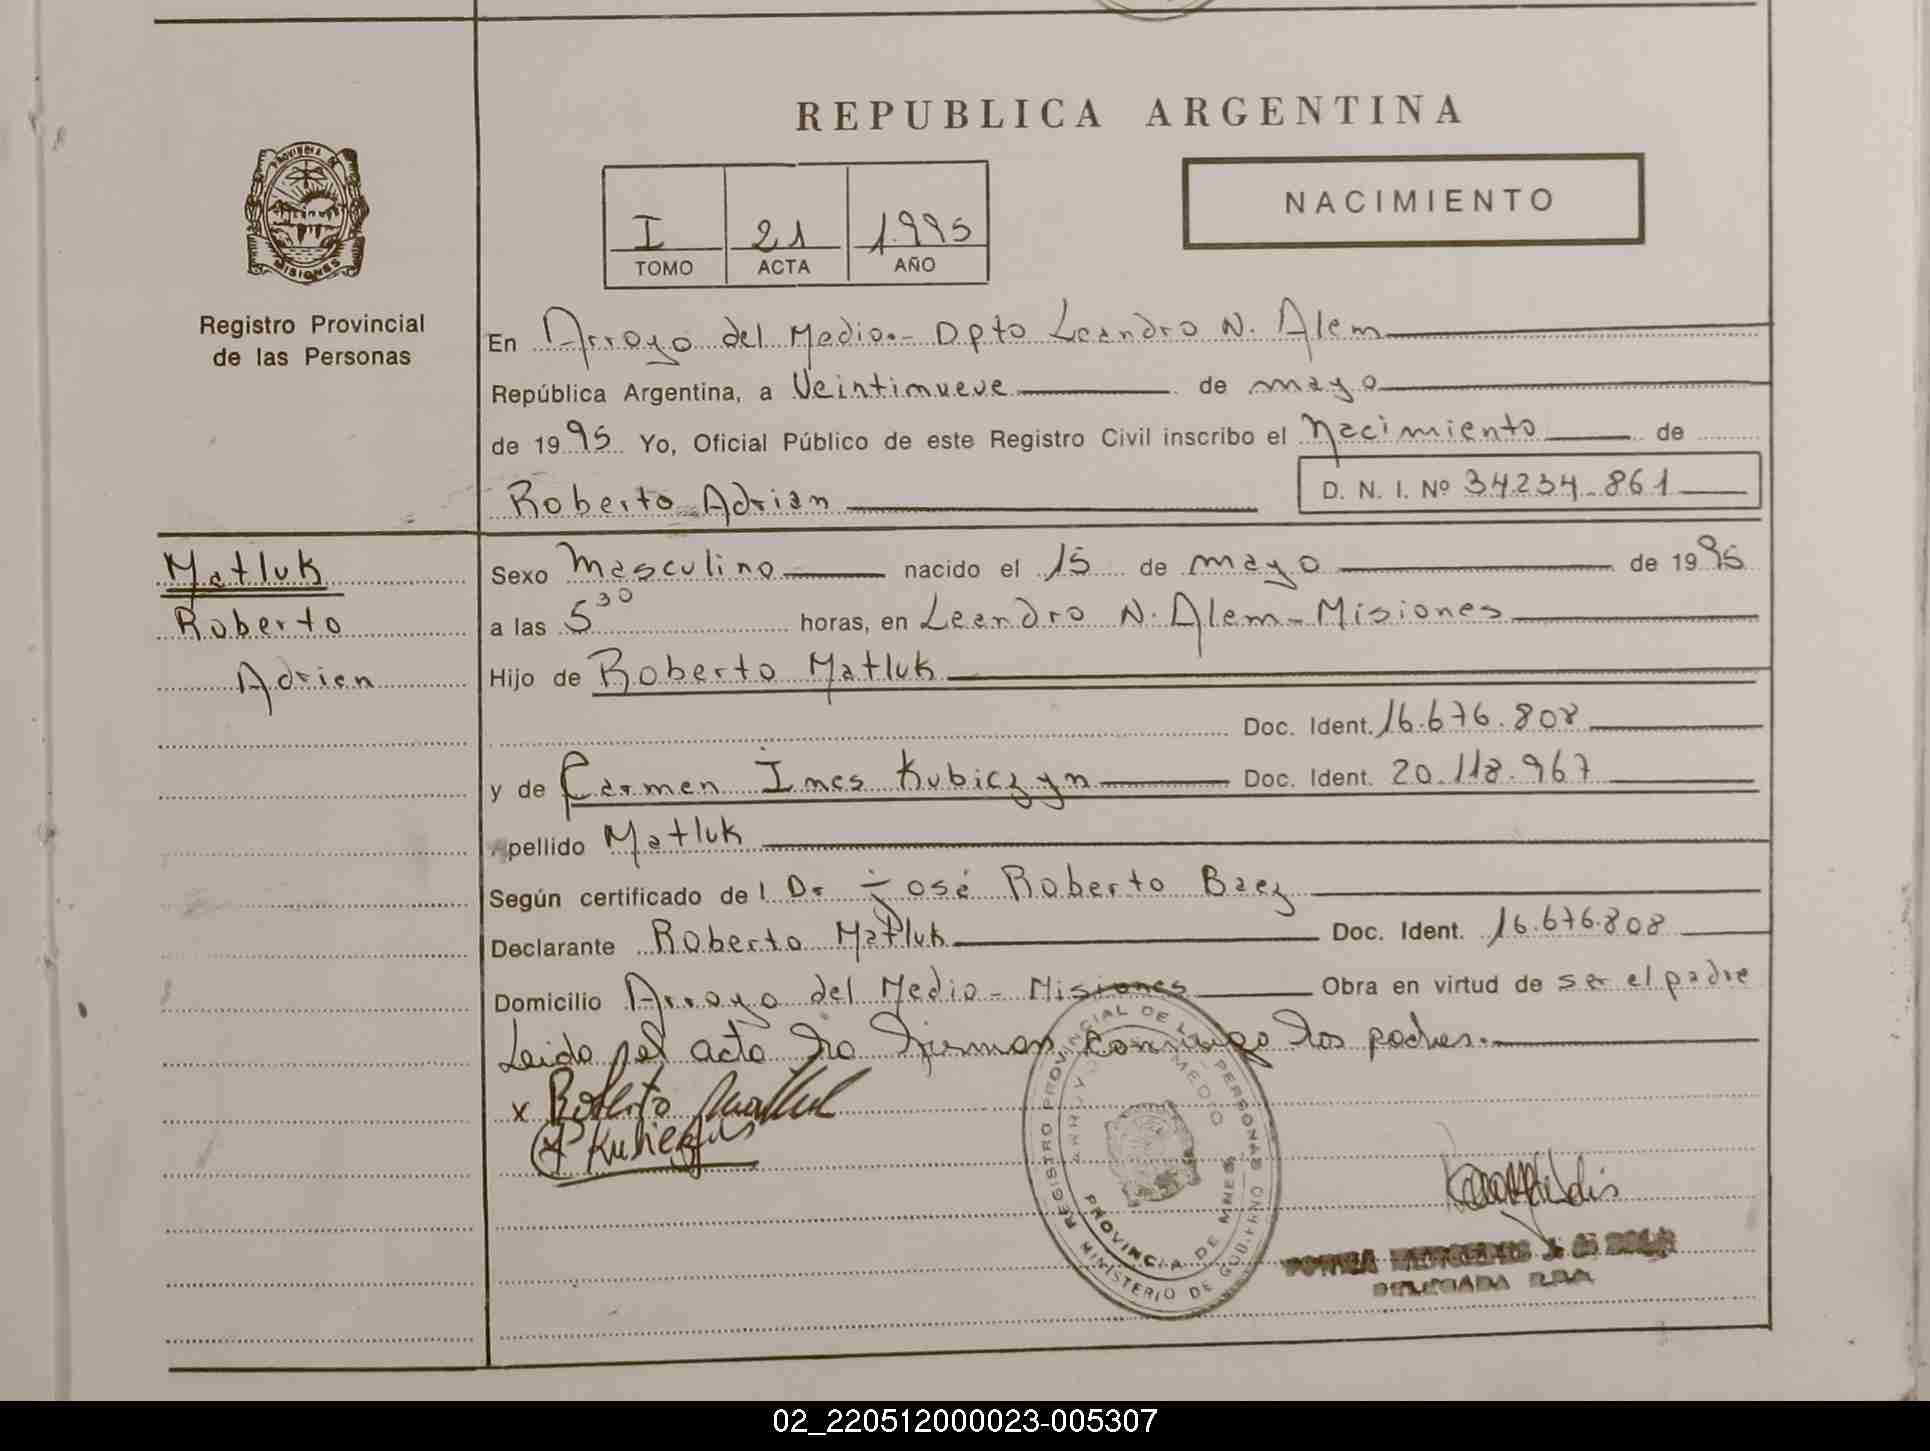 REPUBLICA ARGENTINA
PROVINCIA DE
MISIONES
Registro Provincial
de las Personas
I 21 1995
TOMO ACTA AÑO
NACIMIENTO
En Arroyo del Medio.- Dpto Leandro N. Alem
República Argentina, a Veintinueve de mayo
de 1995 Yo, Oficial Público de este Registro Civil inscribo el Nacimiento de
Roberto Adrian D. N. I. Nº 34234.861
Matluk
Roberto
Adrian
Sexo Masculino nacido el 15 de mayo de 1995
a las 5 30 horas, en Leandro N. Alem - Misiones
Hijo de Roberto Matluk
Doc. Ident. 16.676.808
y de Carmen Ines Kubiczyn Doc. Ident. 20.118.967
Apellido Matluk
Según certificado de l Dr José Roberto Baez
Declarante Roberto Matluk Doc. Ident. 16.676.808
Domicilio Arroyo del Medio - Misiones Obra en virtud de ser el padre
Leida el acta la firman conmigo los padres.
x Roberto Matluk
REGISTRO PROVINCIAL DE LAS PERSONAS
MINISTERIO DE GOBIERNO
ARROYO MEDIO
PROVINCIA DE MNES.
DELEGADA
02_220512000023-005307